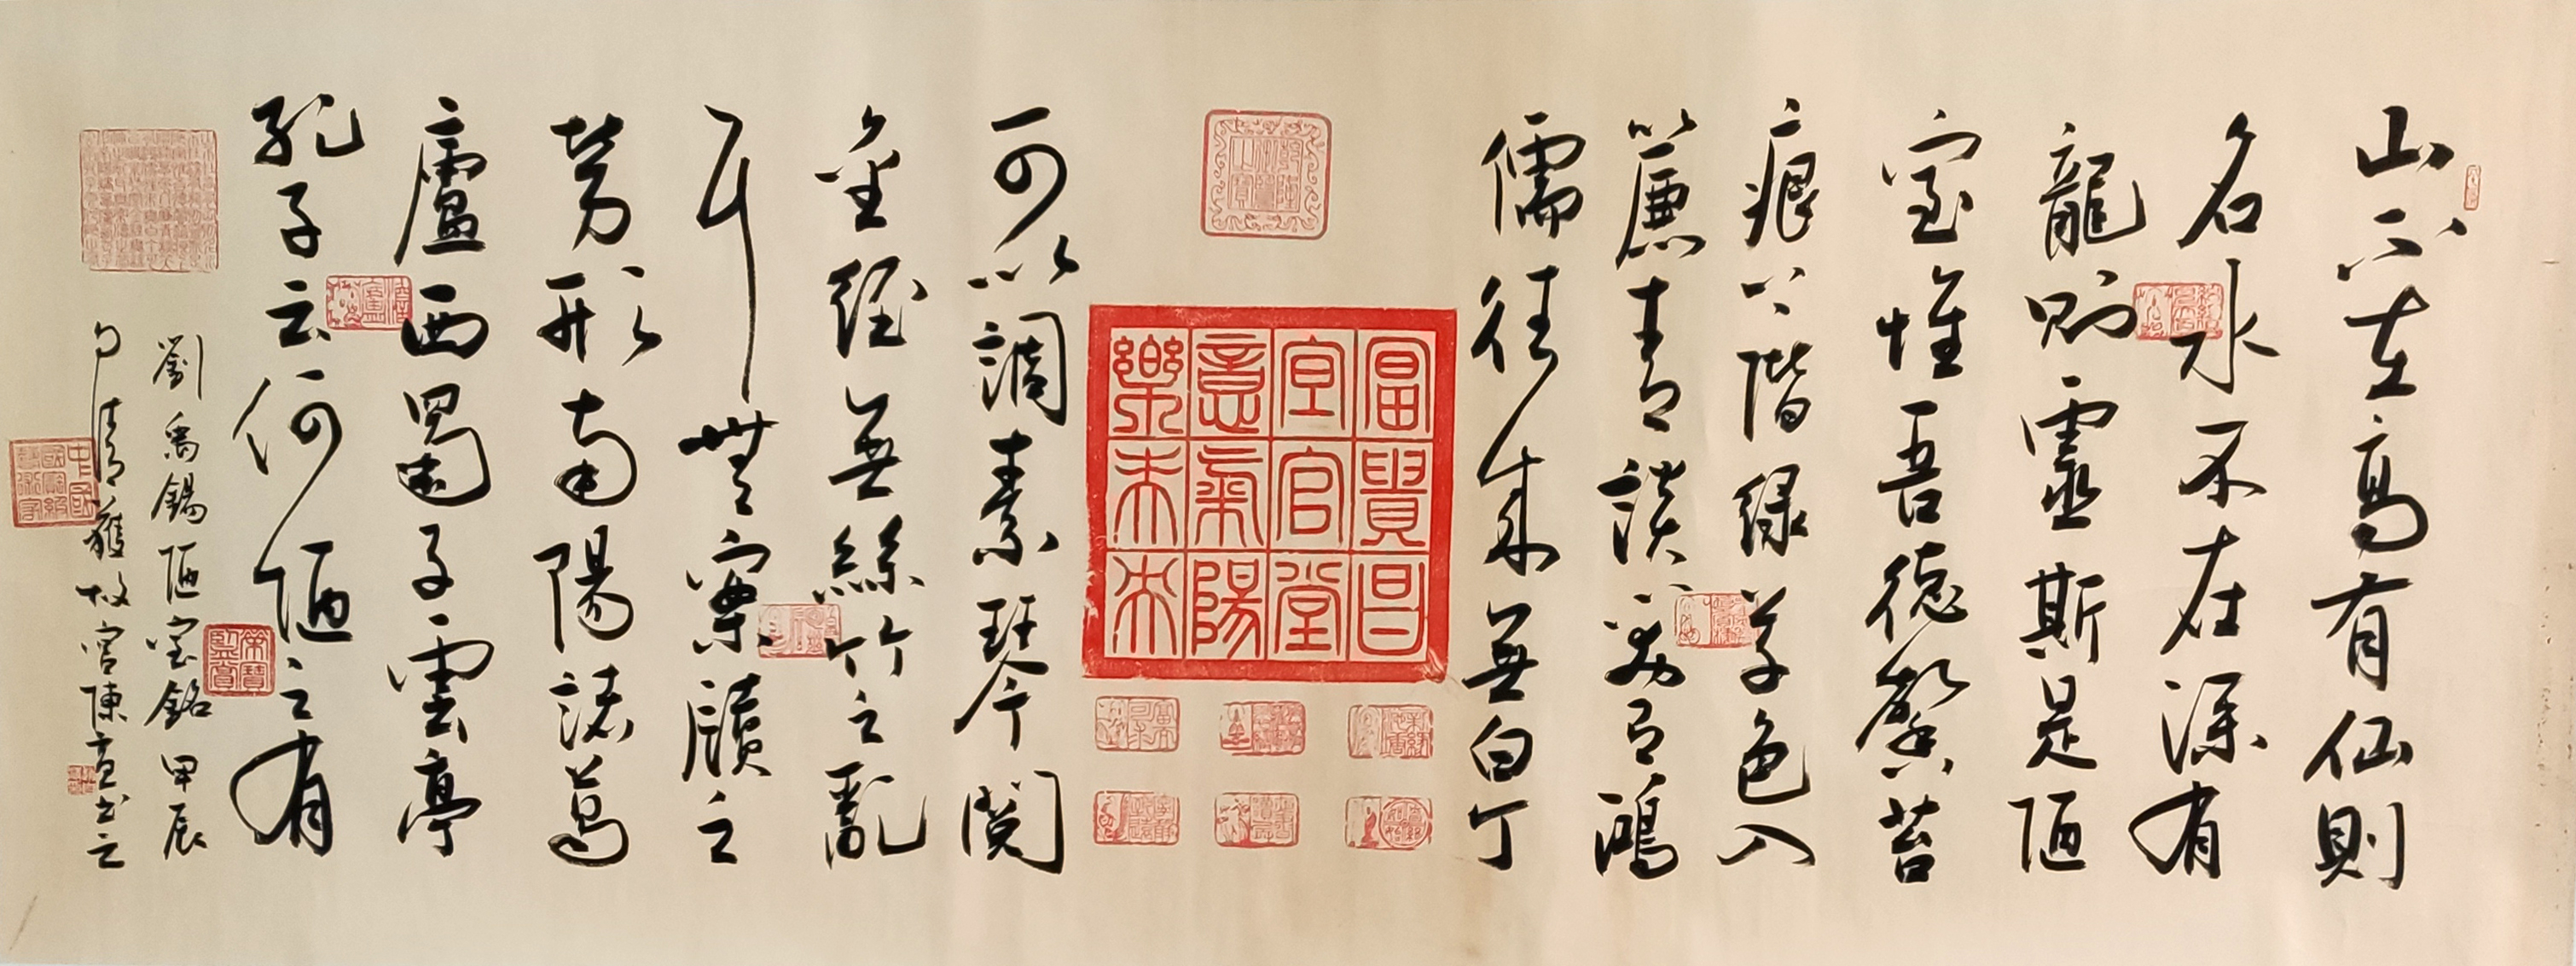 山不在高有仙則
名水不在深有
龍則靈斯是陋
室惟吾德馨苔
痕上階綠草色入
簾青談笑有鴻
儒往來無白丁
富貴昌
宜官堂
意氣陽
樂未央
可以調素琴閱
金經無絲竹之亂
耳無案牘之
勞形南陽諸葛
廬西蜀子雲亭
孔子云何陋之有
劉禹錫陋室銘甲辰
清 故宮陳 書之